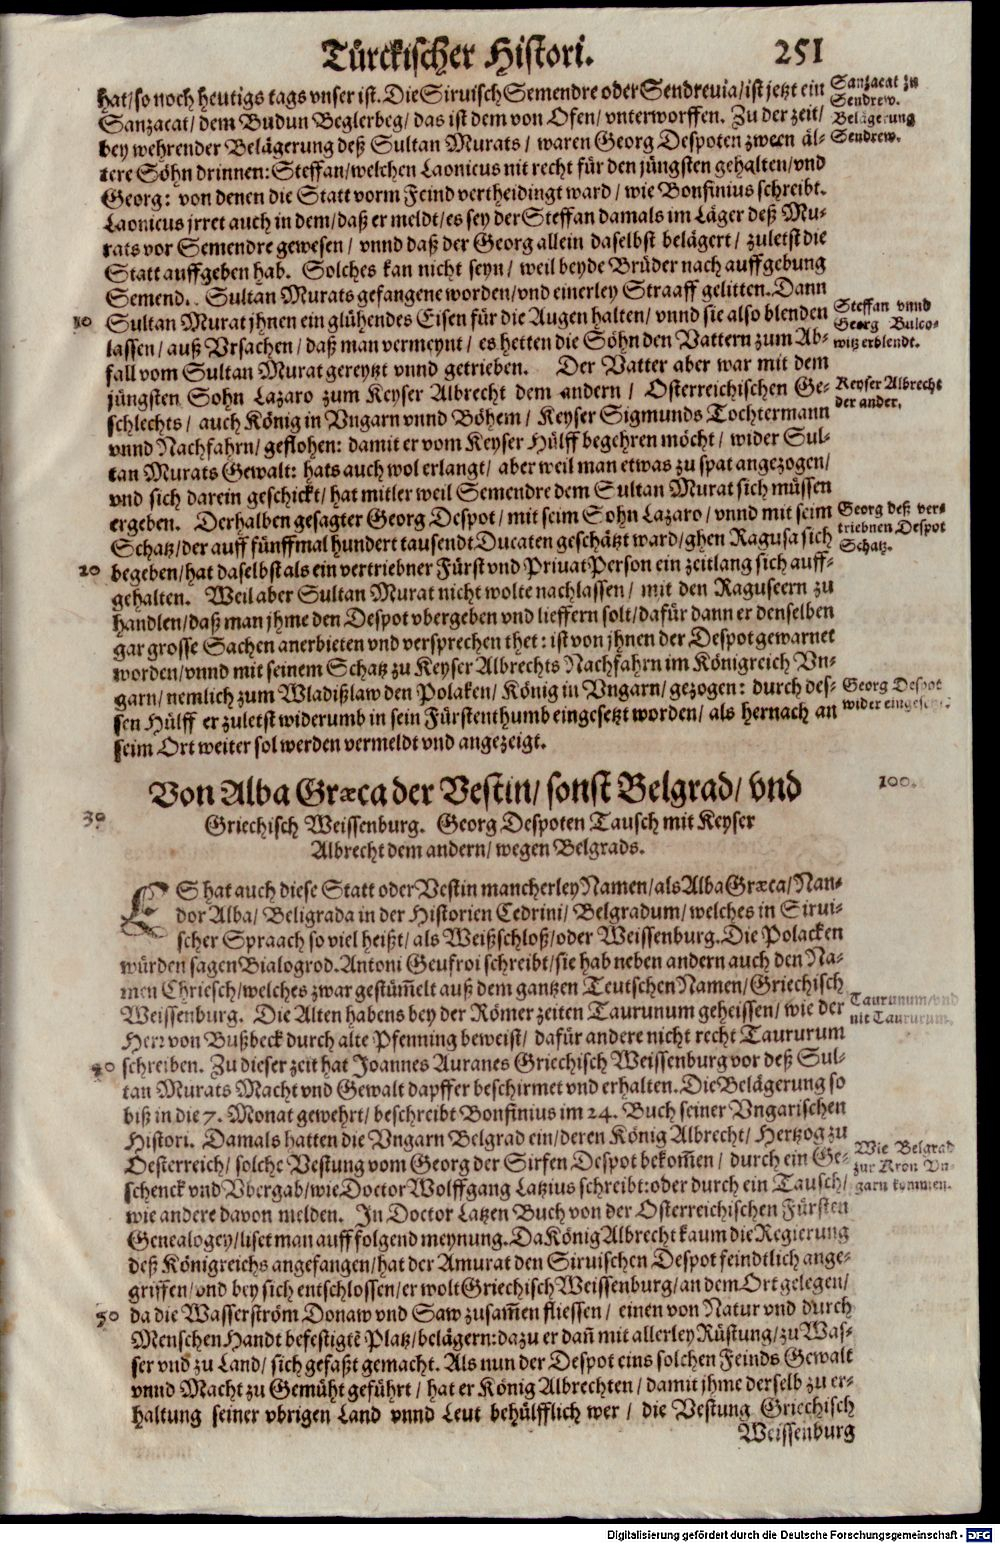 Türckischer Histori. 251
hat/ so noch heutigs tags vnser ist. Die Siruisch Semendre oder Sendrevia/ ist jetzt ein
Sanzacat/ dem Budun Beglerbeg/ das ist dem von Ofen/ vnterworffen. Zu der zeit/
bey wehrender Belägerung deß Sultan Murats/ waren Georg Despoten zween äl-
tere Söhn drinnen: Steffan/ welchen Laonicus nit recht für den jüngsten gehalten/ vnd
Georg: von denen die Statt vorm Feind vertheidingt ward/ wie Bonfinius schreibt.
Laonicus jrret auch in dem/ daß er meldt/ es sey der Steffan damals im Läger deß Mu-
rats vor Semendre gewesen/ vnnd daß der Georg allein daselbst belägert/ zuletst die
Statt auffgeben hab. Solches kan nicht seyn/ weil beyde Brüder nach auffgebung
Semend. Sultan Murats gefangene worden/ vnd einerley Straaff gelitten. Dann
Sultan Murat jhnen ein glühendes Eisen für die Augen halten/ vnnd sie also blenden
lassen/ auß Vrsachen/ daß man vermeynt/ es hetten die Söhn den Vattern zum Ab-
fall vom Sultan Murat gereytzt vnnd getrieben. Der Vatter aber war mit dem
jüngsten Sohn Lazaro zum Keyser Albrecht dem andern/ Osterreichischen Ge-
schlechts/ auch König in Vngarn vnnd Böhem/ Keyser Sigmunds Tochtermann
vnnd Nachfahrn/ geflohen: damit er vom Keyser Hülff begehren möcht/ wider Sul-
tan Murats Gewalt: hats auch wol erlangt/ aber weil man etwas zu spat angezogen/
vnd sich darein geschickt/ hat mitler weil Semendre dem Sultan Murat sich müssen
ergeben. Derhalben gesagter Georg Despot/ mit seim Sohn Lazaro/ vnnd mit seim
Schatz/ der auff fünffmal hundert tausendt Ducaten geschätzt ward/ ghen Ragusa sich
begeben/ hat daselbst als ein vertriebner Fürst vnd Privat Person ein zeitlang sich auff-
gehalten. Weil aber Sultan Murat nicht wolte nachlassen/ mit den Raguseern zu
handlen/ daß man jhme den Despot vbergeben vnd lieffern solt/ dafür dann er denselben
gar grosse Sachen anerbieten vnd versprechen thet: ist von jhnen der Despot gewarnet
worden/ vnnd mit seinem Schatz zu Keyser Albrechts Nachfahrn im Königreich Vn-
garn/ nemlich zum Wladißlaw den Polaken/ König in Vngarn/ gezogen: durch des-
sen Hülff er zuletst widerumb in sein Fürstenthumb eingesetzt worden/ als hernach an
seim Ort weiter sol werden vermeldt vnd angezeigt.
Sanzacat zu
Sendrew.
Belägerung
Sendrew.
10
Steffan vnnd
Georg Bulco-
witz erblendt.
Keyser Albrecht
der ander.
Georg deß ver-
triebnen Despot
Schatz.
20
Georg Despot
wider eingesetzt.
Von Alba Græca der Vestin/ sonst Belgrad/ vnd
Griechisch Weissenburg. Georg Despoten Tausch mit Keyser
Albrecht dem andern/ wegen Belgrads.
100.
30
ES hat auch diese Statt oder Vestin mancherley Namen/ als Alba Græca/ Nan-
dor Alba/ Beligrada in der Historien Cedrini/ Belgradum/ welches in Sirui-
scher Spraach so viel heißt/ als Weißschloß/ oder Weissenburg. Die Polacken
würden sagen Bialogrod. Antoni Geufroi schreibt/ sie hab neben andern auch den Na-
men Chriesch/ welches zwar gestüm̃elt auß dem gantzen Teutschen Namen/ Griechisch
Weissenburg. Die Alten habens bey der Römer zeiten Taurunum geheissen/ wie der
Herr von Bußbeck durch alte Pfenning beweist/ dafür andere nicht recht Taururum
schreiben. Zu dieser zeit hat Joannes Auranes Griechisch Weissenburg vor deß Sul-
tan Murats Macht vnd Gewalt dapffer beschirmet vnd erhalten. Die Belägerung so
biß in die 7. Monat gewehrt/ beschreibt Bonfinius im 24. Buch seiner Vngarischen
Histori. Damals hatten die Vngarn Belgrad ein/ deren König Albrecht/ Hertzog zu
Oesterreich/ solche Vestung vom Georg der Sirfen Despot bekom̃en/ durch ein Ge-
schenck vnd Vbergab/ wie Doctor Wolffgang Latzius schreibt: oder durch ein Tausch/
wie andere davon melden. In Doctor Latzen Buch von der Osterreichischen Fürsten
Genealogey/ liset man auff folgend meynung. Da König Albrecht kaum die Regierung
deß Königreichs angefangen/ hat der Amurat den Siruischen Despot feindtlich ange-
griffen/ vnd bey sich entschlossen/ er wolt Griechisch Weissenburg/ an dem Ort gelegen/
da die Wasserström Donaw vnd Saw zusam̃en fliessen/ einen von Natur vnd durch
Menschen Handt befestigtẽ Platz/ belägern: dazu er dañ mit allerley Rüstung/ zu Was-
ser vnd zu Land/ sich gefaßt gemacht. Als nun der Despot eins solchen Feinds Gewalt
vnnd Macht zu Gemüht geführt/ hat er König Albrechten/ damit jhme derselb zu er-
haltung seiner vbrigen Land vnnd Leut behülfflich wer/ die Vestung Griechisch
Weissenburg
Taurunum/ vnd
nit Taururum.
40
Wie Belgrad
zur Kron Vn-
garn kommen.
50
Digitalisierung gefördert durch die Deutsche Forschungsgemeinschaft - DFG